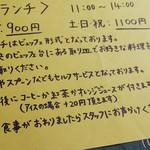 ランチ〉 11:00〜14:00
900円 土日祝:1100円
チはビュッフェ形式となっております。
きのビュッフェ台にある取り皿でお好きな料理を
取りください。
やスプーンなどもセルフサービスとなっております。
後にコーヒーか紅茶かオレンジジュースが付き
(アイスの場合+20円頂きます)
食事がおわりましたらスタッフにお声かけく